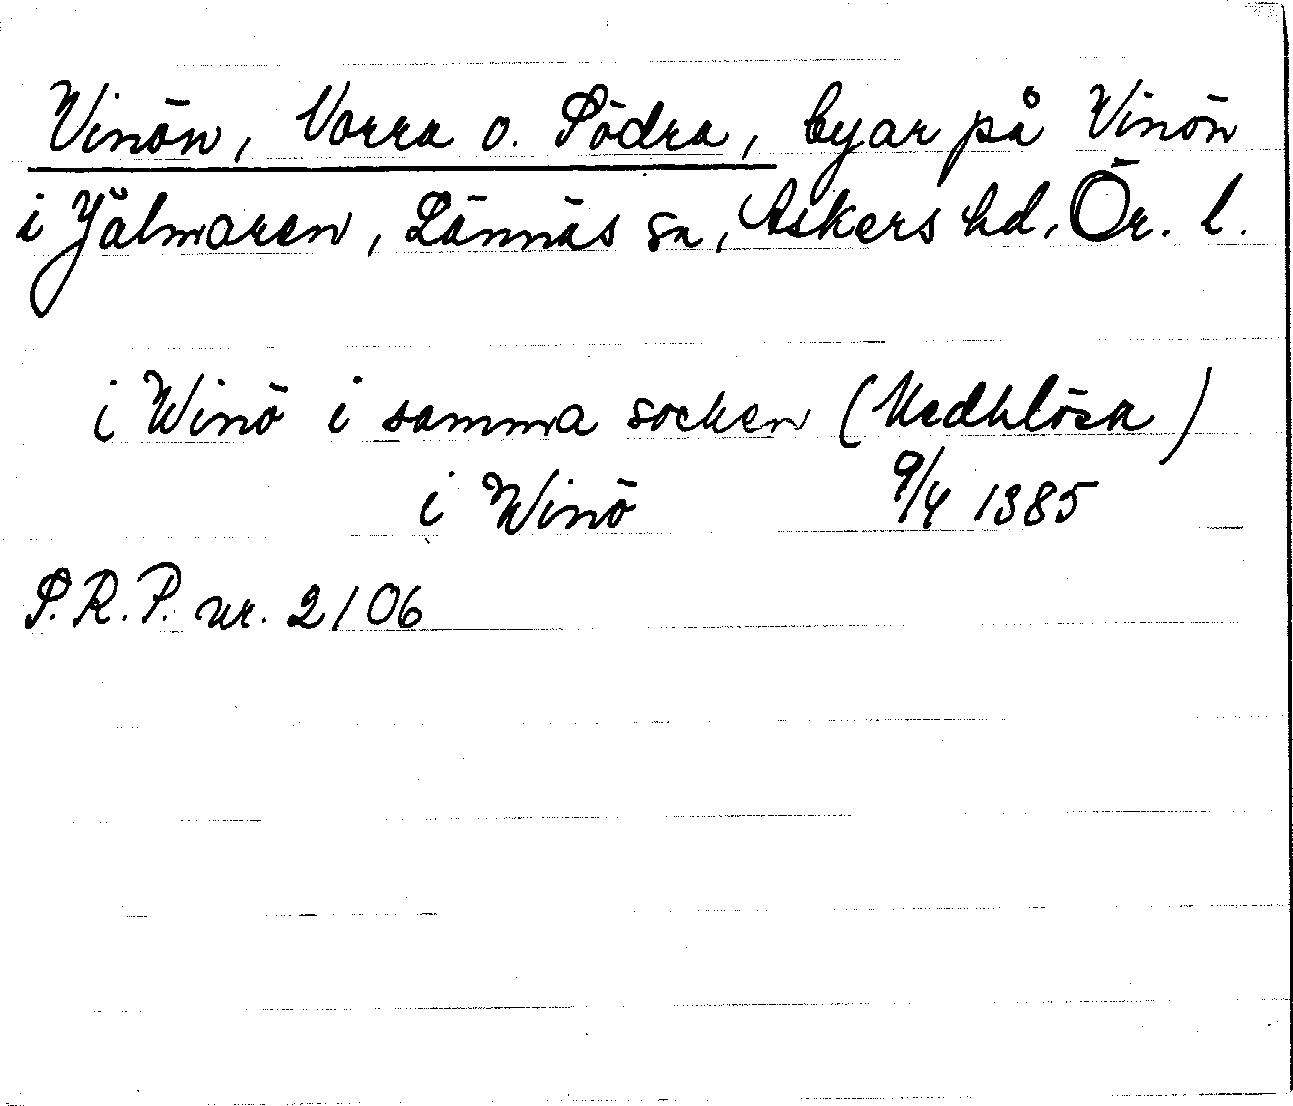 Vinön, Norra o. Södra, byar på Vinön
i Hjälmaren, Lännäs sn, Askers hd, Ör. l.
i Winö i samma socken (Medhlösa)
i Winö 9/4 1385
S.R.P. nr. 2106